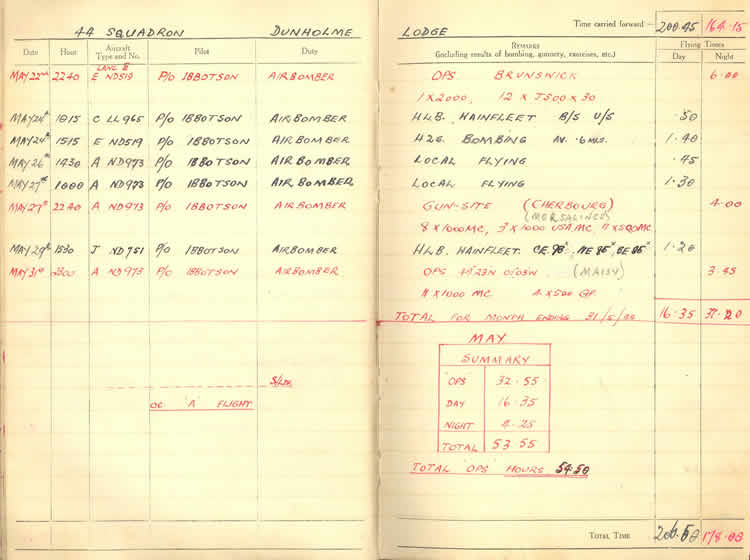 44 SQUADRON DUNHOLME LODGE
Time carried forward — 200.45 164.15
Date Hour Aircraft Type and No. Pilot Duty REMARKS (including results of bombing, gunnery, exercises, etc.) Flying Times Day Night
LANC II
MAY 22nd 2240 E ND519 P/O IBBOTSON AIRBOMBER OPS BRUNSWICK 6.00
1 X 2000, 12 X J500 X 30
MAY 24th 1015 C LL965 P/O IBBOTSON AIRBOMBER H.L.B. WAINFLEET B/S U/S .50
MAY 24th 1515 E ND519 P/O IBBOTSON AIRBOMBER H2S. BOMBING AV. .6 MLS. 1.40
MAY 26th 1430 A ND973 P/O IBBOTSON AIRBOMBER LOCAL FLYING .45
MAY 27th 1000 A ND973 P/O IBBOTSON AIRBOMBER LOCAL FLYING 1.30
MAY 27th 2240 A ND973 P/O IBBOTSON AIRBOMBER GUN-SITE (CHERBOURG) 4.00
(MORSALINES)
8 X 1000MC, 3 X 1000 USA MC, 11 X 500MC
MAY 29th 1530 J ND751 P/O IBBOTSON AIRBOMBER H.L.B. WAINFLEET. 1.20
MAY 31st 2300 A ND973 P/O IBBOTSON AIRBOMBER OPS (MAISY) 3.45
11 X 1000 MC 4 X 500 GP.
TOTAL FOR MONTH ENDING 31/5/44 16.35 37.20
MAY
SUMMARY
"OPS" 32.55
DAY 16.35
NIGHT 4.25
TOTAL 53 55
S/LDR
OC 'A' FLIGHT
TOTAL 'OPS' HOURS 54.50
TOTAL TIME